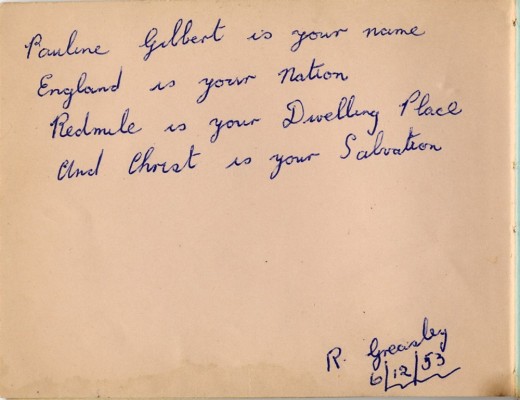 Pauline Gilbert is your name
England is your Nation
Redmile is your Dwelling Place
And Christ is your Salvation
R. Greasley
6/12/53